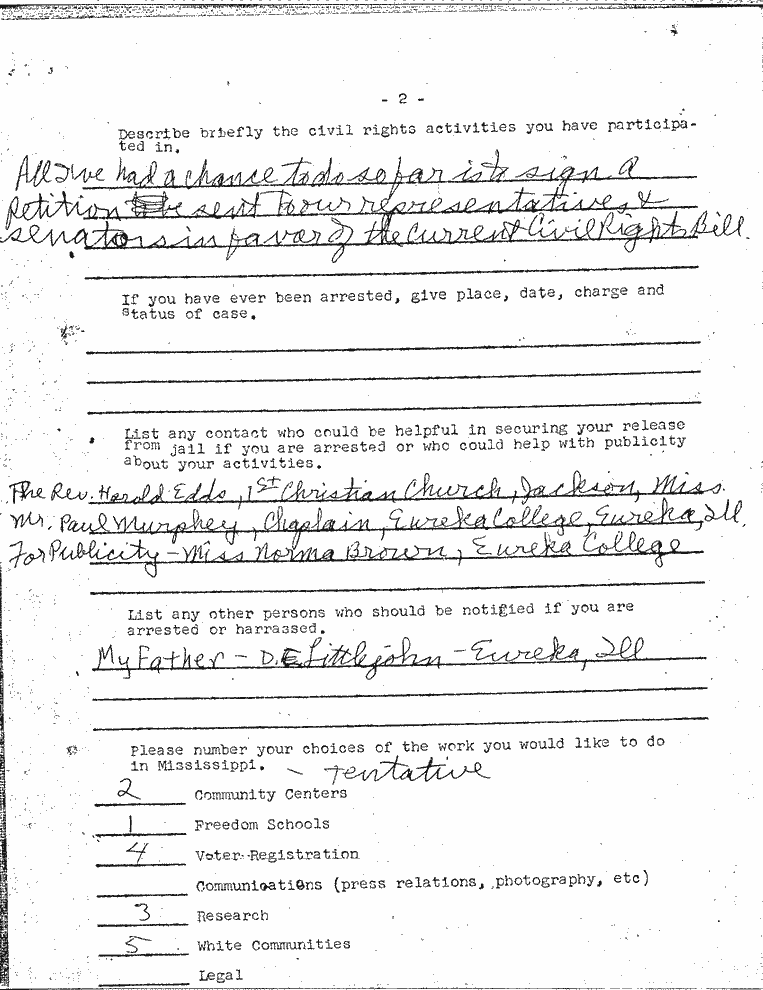 - 2 -
Describe briefly the civil rights activities you have participa-
ted in.
All I've had a chance to do so far is to sign a
petition to be sent to our representatives &
senators in favor of the current Civil Rights Bill.
If you have ever been arrested, give place, date, charge and
status of case.
List any contact who could be helpful in securing your release
from jail if you are arrested or who could help with publicity
about your activities.
The Rev. Harold Edds, 1st Christian Church, Jackson, Miss.
Mr. Paul Murphey, Chaplain, Eureka College, Eureka, Ill.
For Publicity - Miss Norma Brown, Eureka College
List any other persons who should be notified if you are
arrested or harrassed.
My Father - D.E. Littlejohn - Eureka, Ill
Please number your choices of the work you would like to do
in Mississippi. - Tentative
2 Community Centers
1 Freedom Schools
4 Voter-Registration
Communications (press relations, photography, etc)
3 Research
5 White Communities
Legal